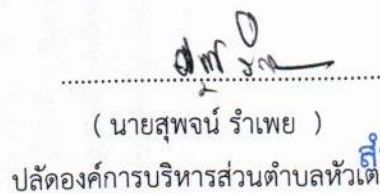 ( นายสุพจน์ รำเพย )
ปลัดองค์การบริหารส่วนตำบลหัวเต